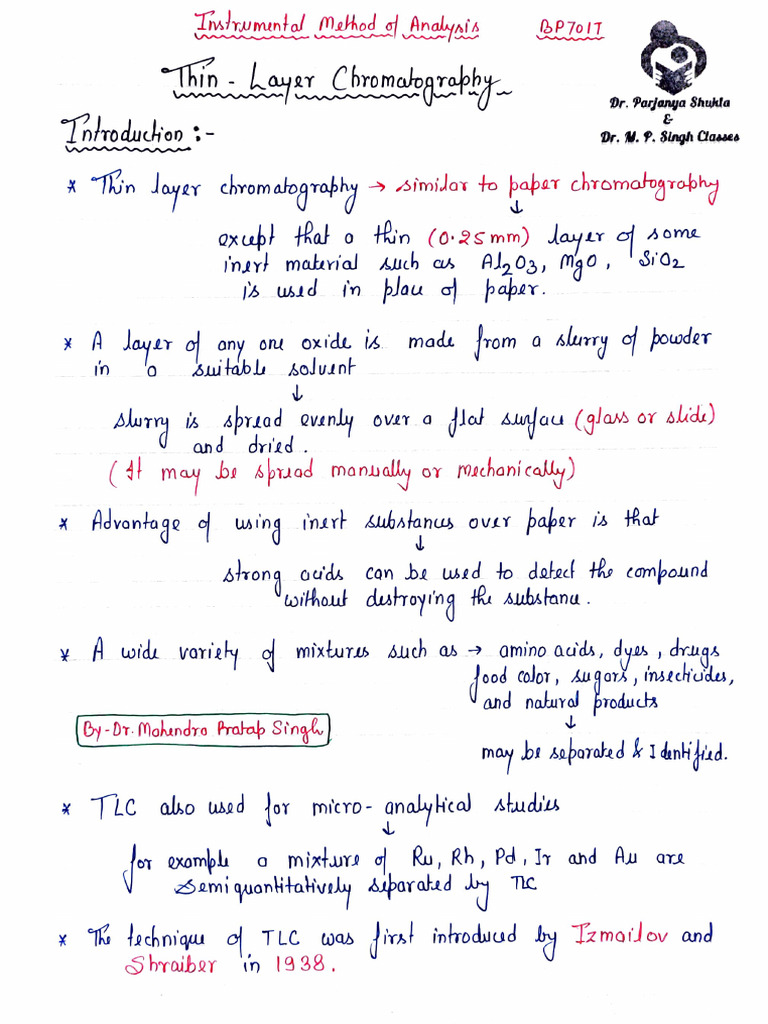 Instrumental Method of Analysis BP701T
Thin-Layer Chromatography
Dr. Parjanya Shukla
&
Dr. M. P. Singh Classes
Introduction:-
* Thin layer chromatography → similar to paper chromatography
↓
except that a thin (0.25mm) layer of some
inert material such as Al2O3, MgO, SiO2
is used in place of paper.
* A layer of any one oxide is made from a slurry of powder
in a suitable solvent
↓
slurry is spread evenly over a flat surface (glass or slide)
and dried.
(It may be spread manually or mechanically)
* Advantage of using inert substances over paper is that
↓
strong acids can be used to detect the compound
without destroying the substance.
* A wide variety of mixtures such as → amino acids, dyes, drugs
food color, sugars, insecticides,
and natural products
↓
By-Dr. Mahendra Pratap Singh
may be separated & Identified.
* TLC also used for micro-analytical studies
↓
for example a mixture of Ru, Rh, Pd, Ir and Au are
Semiquantitatively separated by TLC
* The technique of TLC was first introduced by Izmailov and
Shraiber in 1938.